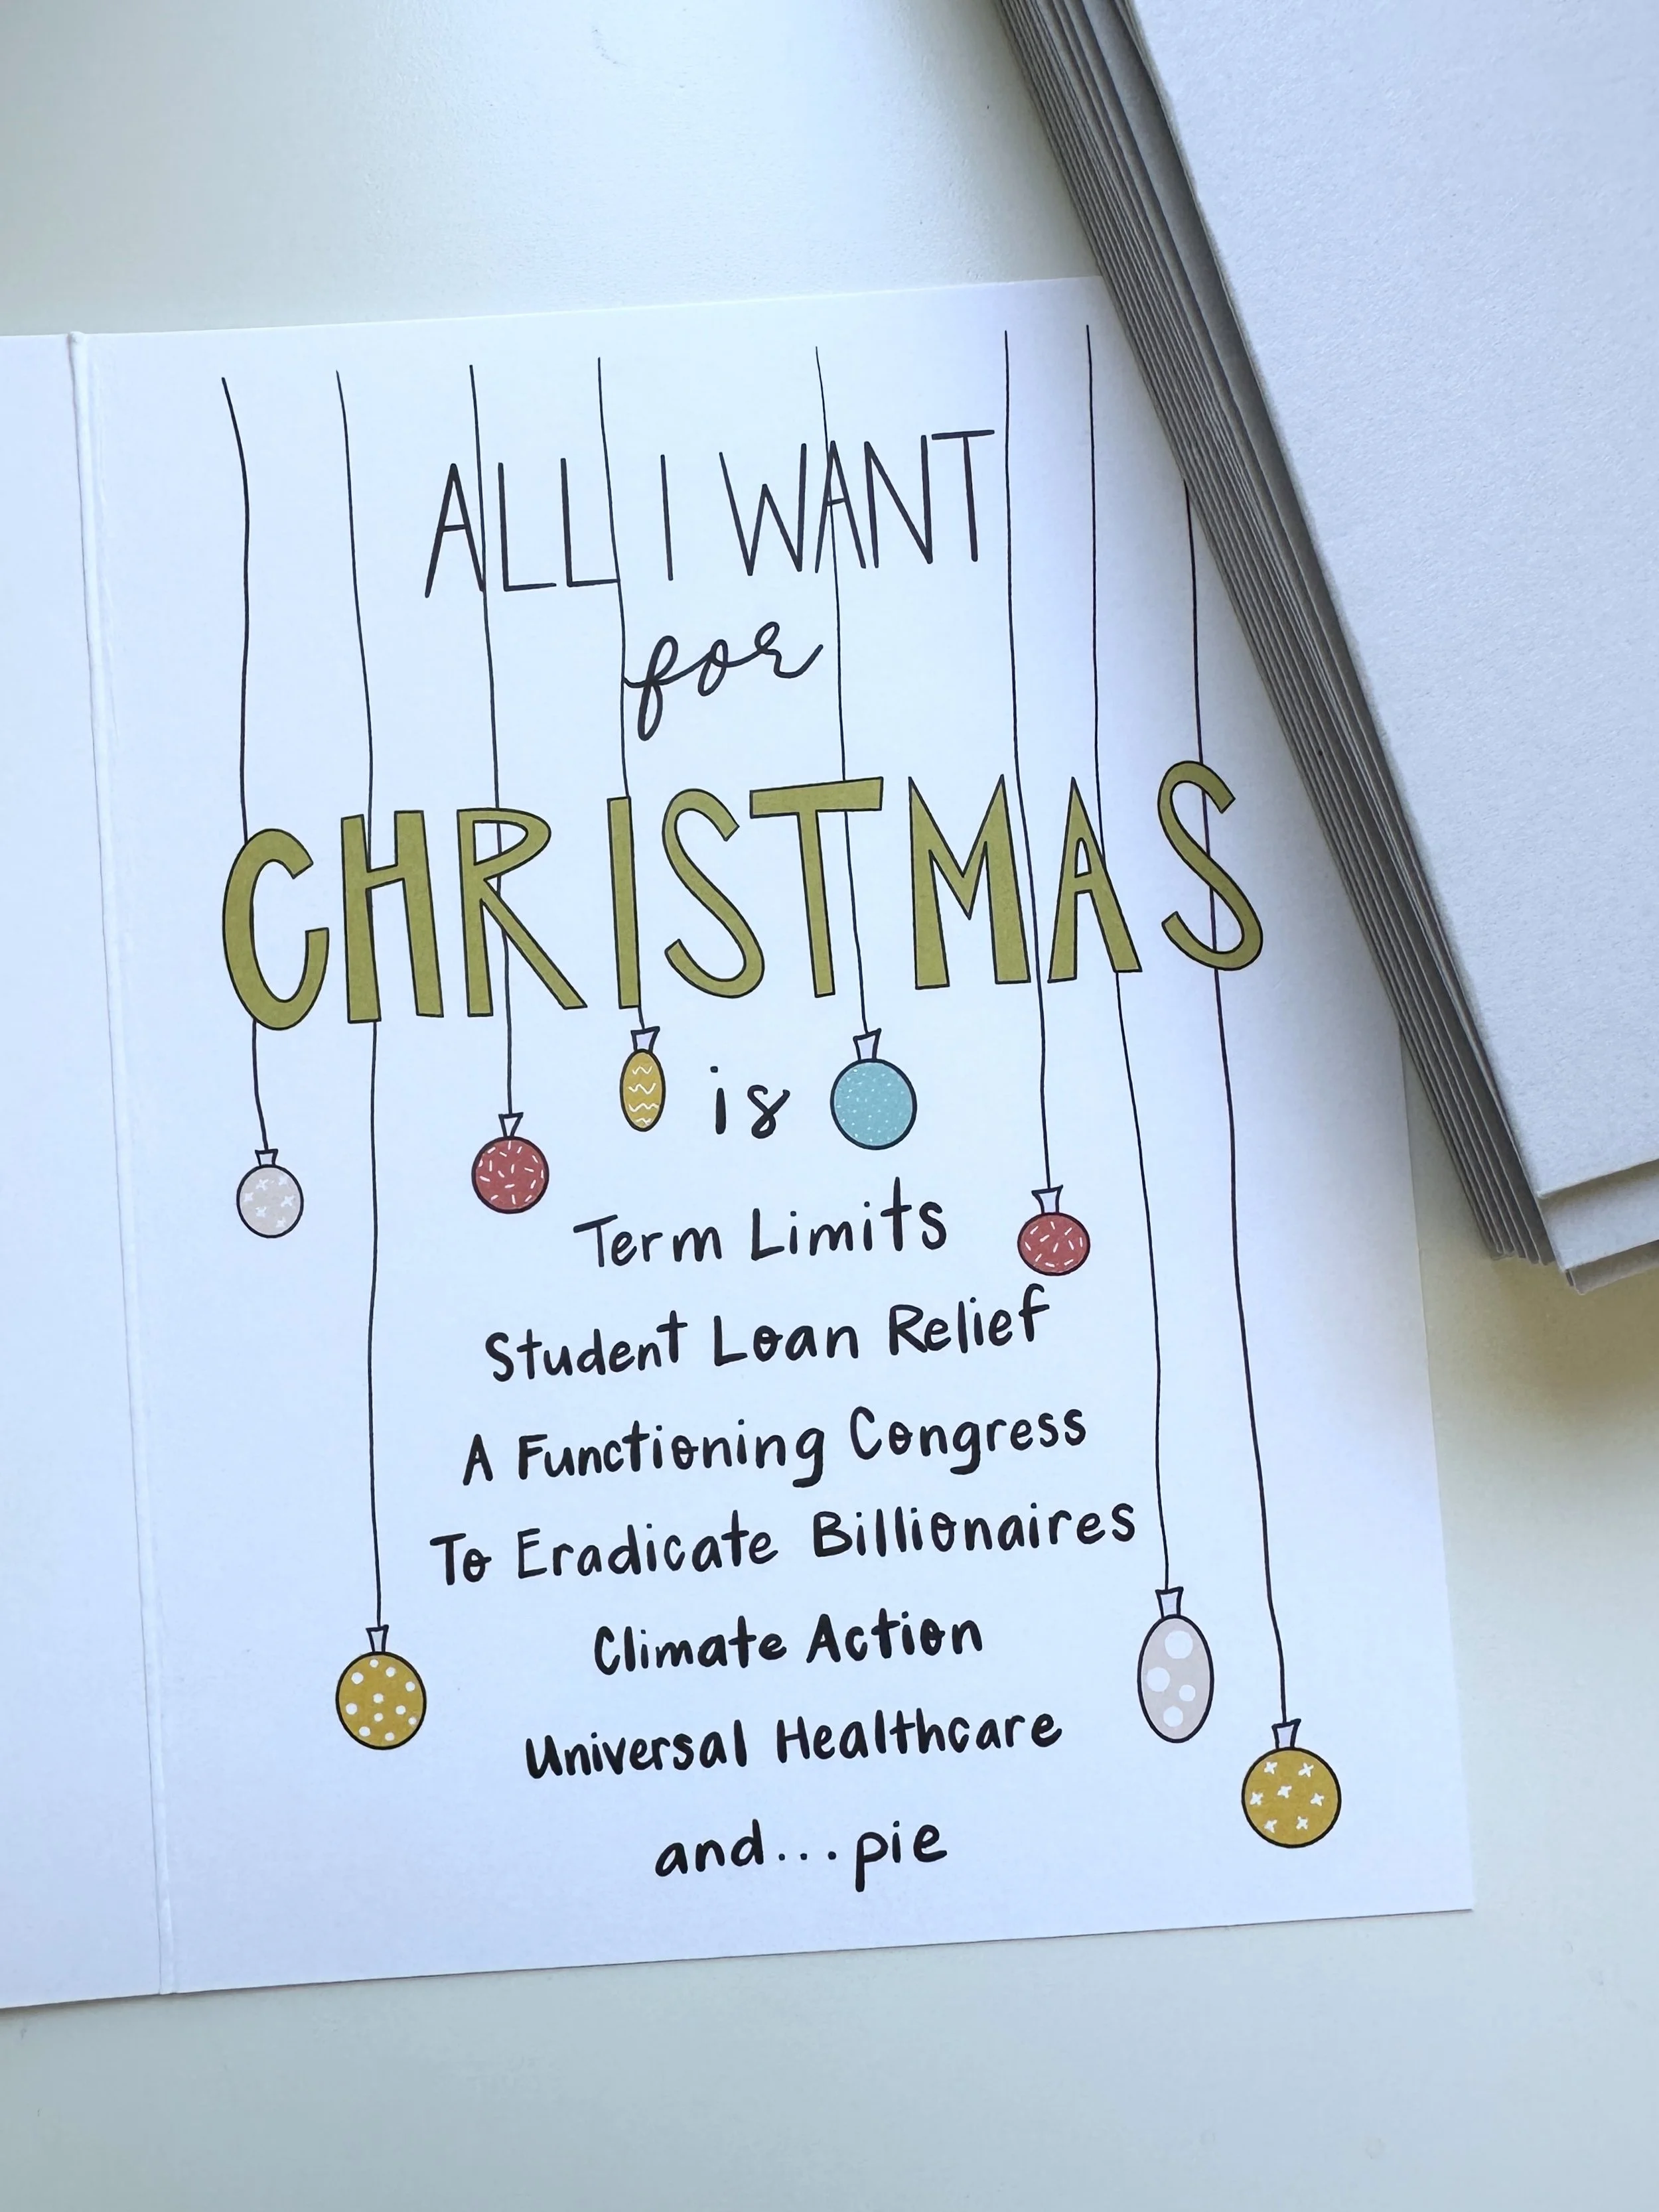 ALL I WANT
for
CHRISTMAS
is
Term Limits
Student Loan Relief
A Functioning Congress
To Eradicate Billionaires
Climate Action
Universal Healthcare
and...pie